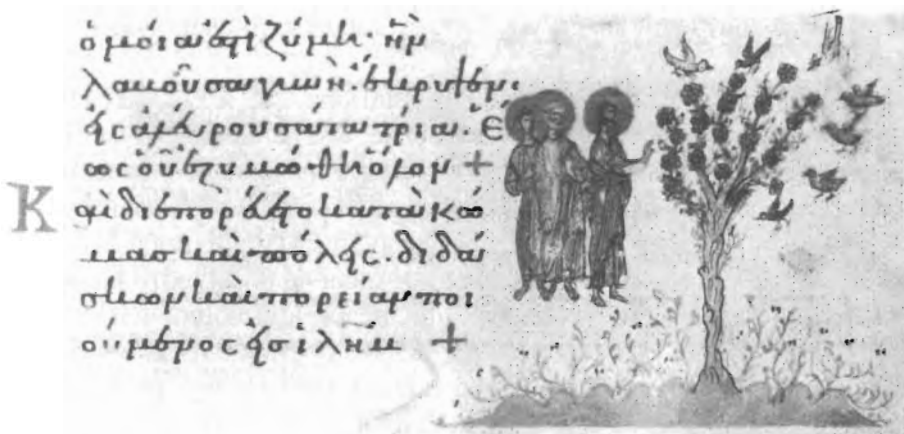 ὁμοία ἐστὶ ζύμη· ἣν
λαβοῦσα γυνὴ. ἔκρυψεν
εἰς ἀλεύρου σάτα τρία. ἕ
ως οὗ ἐζυμώθη ὅλον +
Καὶ διεπορεύετο κατὰ κώ
μας καὶ πόλεις. διδά
σκων καὶ πορείαν ποι
ούμενος εἰς ἰλῆμ +